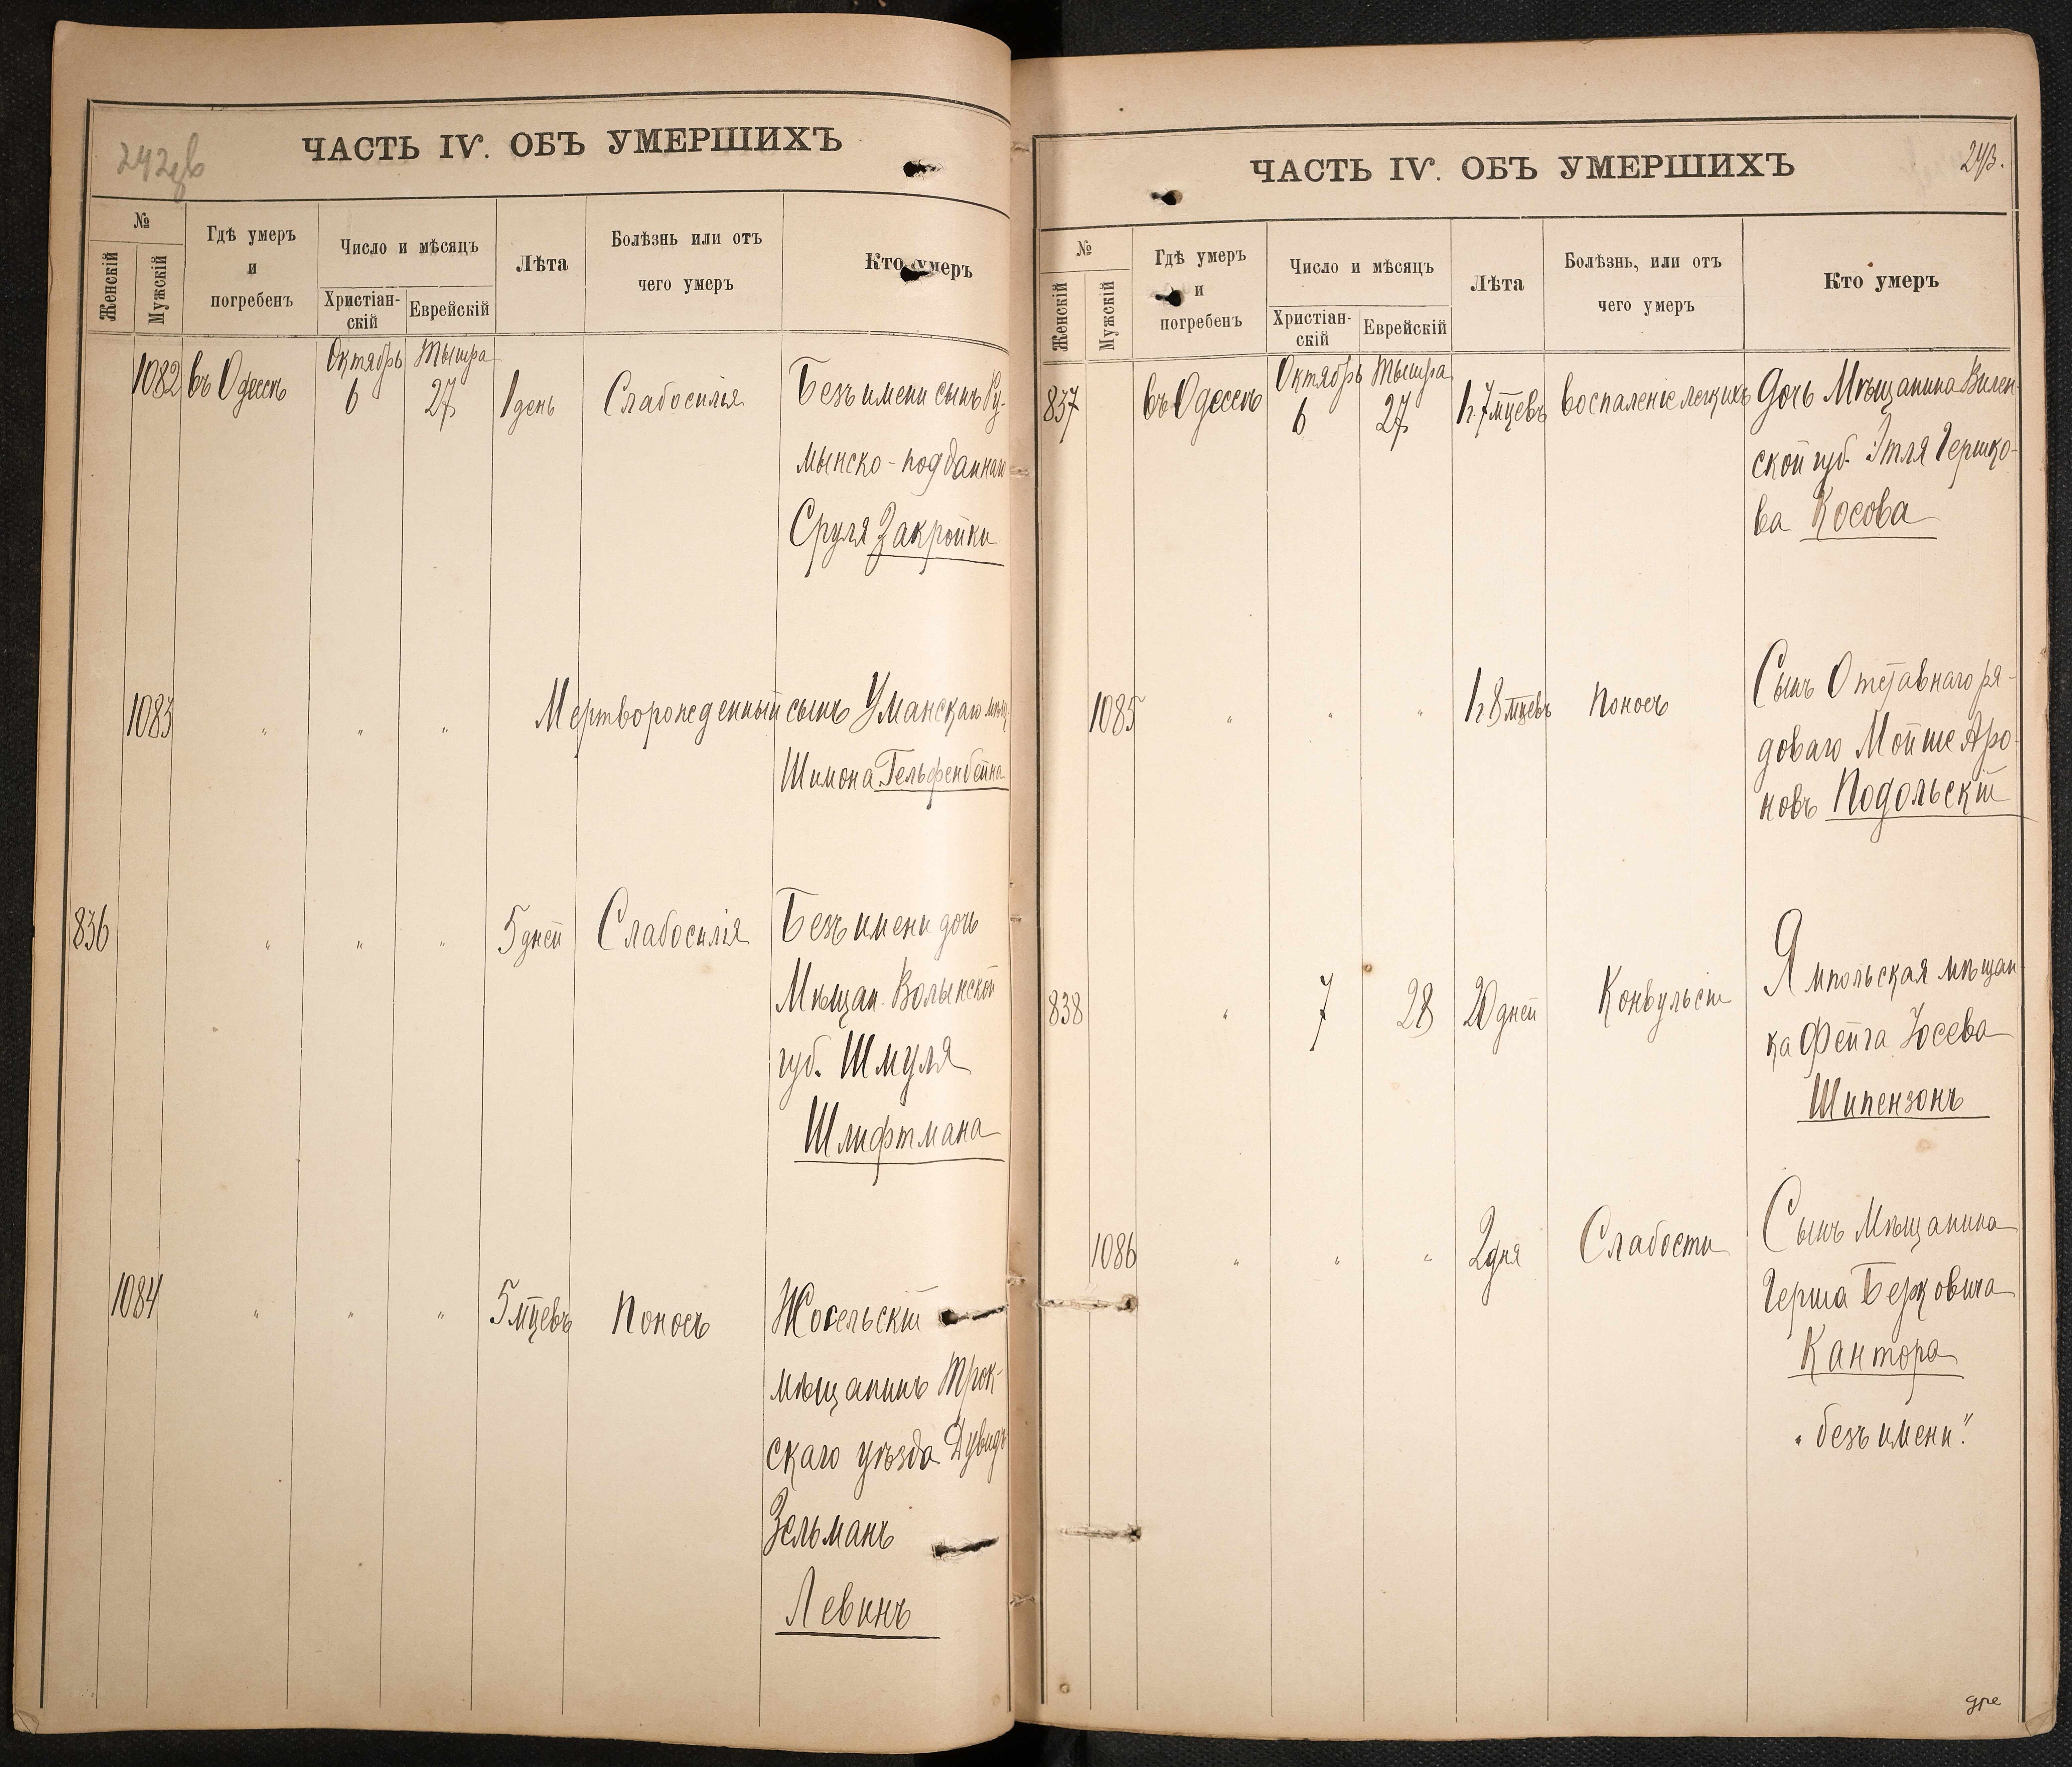 ЧАСТЬ IV. ОБЪ УМЕРШИХЪ
№
Женскій
Мужскій
Гдѣ умеръ
и
погребенъ
Число и мѣсяцъ
Христіан-
скій
Еврейскій
Лѣта
Болѣзнь или отъ
чего умеръ
Кто умеръ
1082 въ Одессѣ Октябрь 6 Тышра 27 1 день Слабосилія Безъ имени сынъ Ру-
мынско-подданнаго
Сруля Закройки
1083 " " " Мертворожденный сынъ Уманскаго мѣщ.
Шимона Гельфенбейна
836 " " " 5 дней Слабосилія Безъ имени дочь
Мѣщан. Волынской
губ. Шмуля
Шлифтмана
1084 " " " 5 мцевъ Поносъ Жосельскій
мѣщанинъ Трок-
скаго уѣзда Дувидъ
Зельманъ
Левинъ
ЧАСТЬ IV. ОБЪ УМЕРШИХЪ
243.
№
Женскій
Мужскій
Гдѣ умеръ
и
погребенъ
Число и мѣсяцъ
Христіан-
скій
Еврейскій
Лѣта
Болѣзнь, или отъ
чего умеръ
Кто умеръ
837 въ Одессѣ Октябрь 6 Тышра 27 1 г. 7 мцевъ Воспаленіе легкихъ Дочь Мѣщанина Вилен-
ской губ. Этля Гершко-
ва Косова
1085 " " " 1 г 8 мцевъ Поносъ Сынъ Отставнаго ря-
доваго Мойше Аро-
новъ Подольскій
838 " 7 28 20 дней Конвульсіи Ямпольская мѣщан-
ка Фейга Іосева
Шипензонъ
1086 " " " 2 дня Слабости Сынъ Мѣщанина
Герша Берковича
Кантора
"безъ имени".